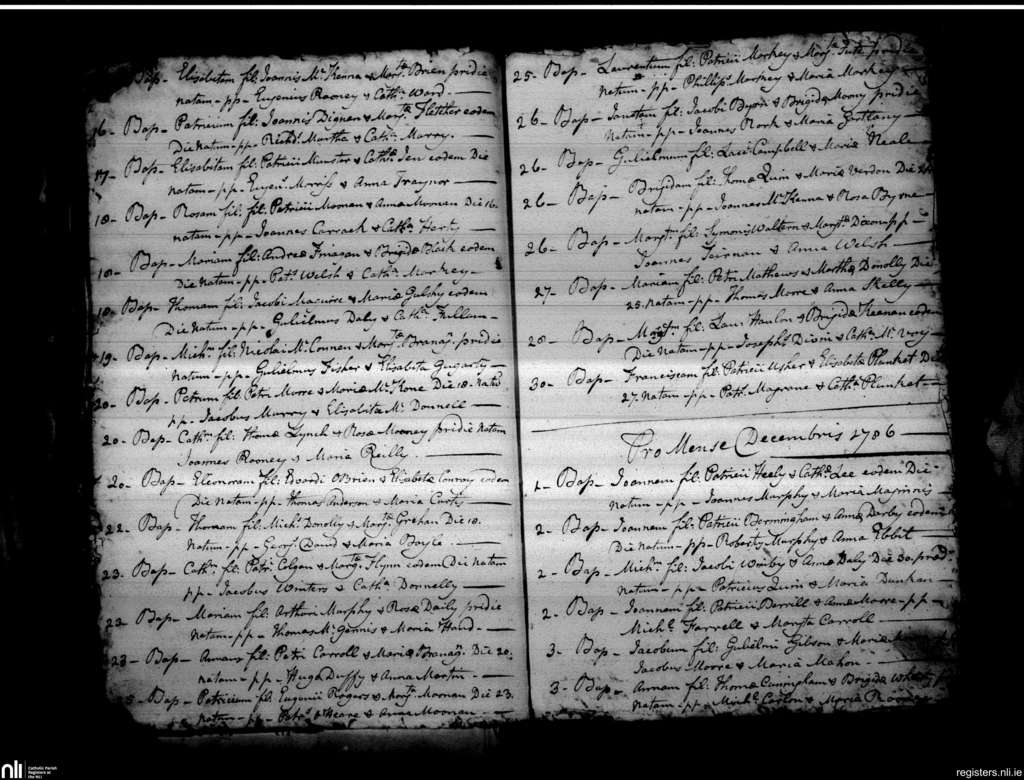 Bap- Elisabetam fil: Joannis McKenna & Margta Brien pridie
natam - pp - Eugenius Rooney & Cathn Ward.
16- Bap- Patricium fil: Joannis Dignan & Margta Fletcher eodem
Die Natum - pp - Richd Murtha & Cathn Murry.
17- Bap- Elisabetam fil: Patricii Munster & Cathn eodem Die
natam - pp - Eugens Morriss & Anna Traynor
18- Bap- Rosam fil: Patricii Moonan & Anna Moonan Die 16.
natam - pp - Joannes Carrack & Cathn Harty
18- Bap- Mariam fil: Andreæ Finagan & Brigidæ Black eodem
Die Natam - pp - Pats Welsh & Cathn Markey-
18- Bap- Thomam fil: Jacobi Macuire & Mariæ Gulshy eodem
Die Natum - pp - Gulielmus Daly & Cathn Fullam-
19- Bap- Michm fil: Nicolai McConnen & Margta Branan pridie
natum - pp - Gulielmus Fisher & Elisabeta Gugarty-
20- Bap- Petrum fil: Petri Moore & Mariæ McKone Die 18. natum
pp - Jacobus Murry & Elisabeta McDonnell
20- Bap- Cathn fil: Thomæ Lynch & Rosæ Mooney pridie natam
Joannes Rooney & Maria Reilly.
20- Bap- Eleonoram fil: Edvardi OBrien & Elisabetæ Conroy eodem
Die natam - pp - Thomas Anderson & Maria Curtis
22. Bap- Thomam fil: Michl Donolly & Margta Grehan Die 18.
Natum - pp - George David & Maria Boyle
23. Bap- Cathn fil: Patri Colgan & Margt Flynn eodem Die natam
pp - Jacobus Winters & Cathn Donnelly
23. Bap- Mariam fil: Arthuri Murphy & Rosæ Daily pridie
Natam - pp - Thomas McGennis & Maria Hand.
23- Bap- Annam fil: Patri Carroll & Mariæ Branagn Die 20.
natam - pp - Hugh Duffy & Anna Martin
Bap- Patricium fil: Eugenii Rogers & Margta Moonan Die 23.
natum - pp - Patrs OHeare & Anna Moonan
25- Bap- Laurentium fil: Patricii Markey & Margta Tute pridie
natum - pp - Phillips Markey & Maria Markey
26- Bap- fil: Jacobi Byrn & Brigidæ Moony pridie
Natum - pp - Joannes Rork & Maria
26- Bap- Gulielmum fil: Laui Campbell & Mariæ Neale
26- Bap- Brigidam fil: Thomæ Quin & Mariæ Verdon Die
natam - pp - Joannes McKenna & Rosa Byrne
26- Bap- Margt fil: Symonis Waltern & Margta Dixon - pp -
Joannes Teirnan & Anna Welsh
27- Bap- Mariam fil: Petri Mathews & Marthæ Donolly Die
25. Natam - pp - Thomas Moore & Anna Skelly
28- Bap- fil: Laui Hanlon & Brigidæ Keenan eodem
Die Natam - pp - Josephs Divin & Cathn
30- Bap- Franciscam fil: Patricii Usher & Elisabeta Plunket Die
27. Natam - pp - Patk Magrane & Cathn Plunket
Pro Mense Decembris 1786
1- Bap- Joannem fil: Patricii Heely & Cathn Lee eodem Die
natum - pp - Joannes Murphy & Maria Maginnis
2- Bap- Joannem fil: Patricii Bermingham & Annæ Darby eodem
Die natum - pp - Roberts Murphy & Anna Ebbit
2- Bap- Michm fil: Jacobi & Annæ Daly Die 30. prædi
natum - pp - Patricius Quin & Maria Dunkan
2- Bap- Joannem fil: Patricii Darrill & Annæ Moore - pp -
Michl Farrell & Margta Carroll
3- Bap- Jacobum fil: Gulielmi Gilson & Mariæ
Jacobus Moore & Maria Mahon
3- Bap- Annam fil: Thomæ Cuningham & Brigidæ
natam - pp - Michl Carton & Maria
nli
Catholic Parish
Registers at
the NLI
registers.nli.ie